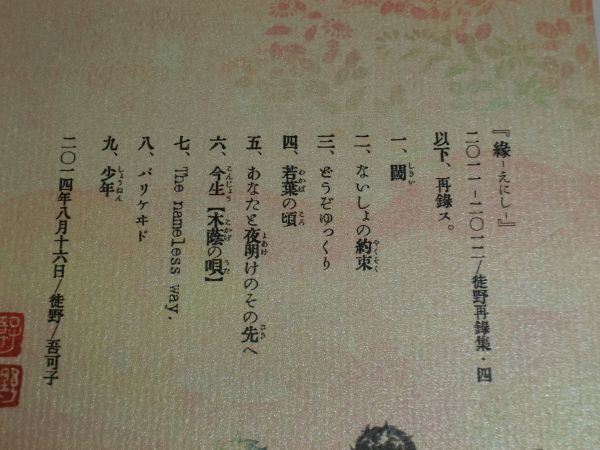 『縁-えにし-』
二〇一一-二〇一二/徒野再録集・四
以下、再録ス。
一、閾
二、ないしょの約束
三、どうぞゆっくり
四、若葉の頃
五、あなたと夜明けのその先へ
六、今生【木蔭の唄】
七、The nameless way.
八、バリケヰド
九、少年
二〇一四年八月十六日/徒野/吾可子